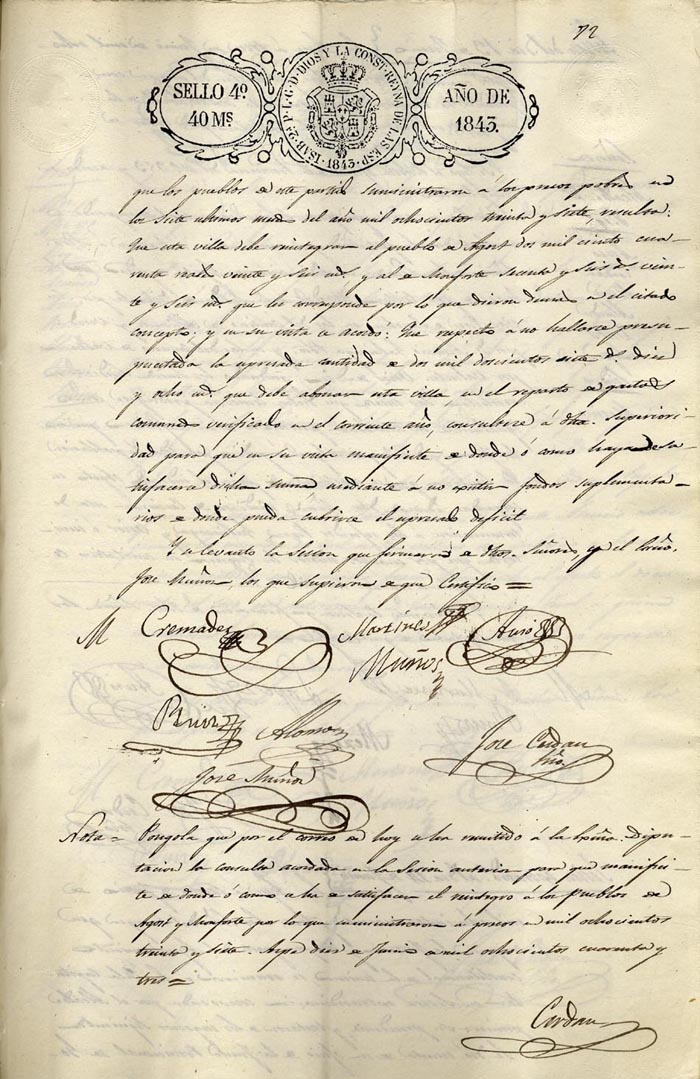 72
SELLO 4º
40 Mˢ.
ISAB. 2ª P. L. G. D. DIOS Y LA CONST. REYNA DE LAS ESP. 1843.
AÑO DE
1843.
que los pueblos de este partido suministraron á los presos pobres en
los siete ultimos meses del año mil ochocientos treinta y siete resulta:
Que esta villa debe reintegrar al pueblo de Agost dos mil ciento cua-
renta reales veinte y seis ms. y al de Monforte sesenta y seis rs. vein-
te y seis ms. que les corresponde por lo que dieron demas en el citado
concepto; y en su vista se acordó: Que respecto á no hallarse presu-
puestada la espresada cantidad de dos mil doscientos siete rs. diez
y ocho ms. que debe abonar esta villa en el reparto de gastos
comunes verificado en el corriente año, consultese á dha. Superiori-
dad para que en su vista manifieste de donde ó como haya de sa-
tisfacerse dicha suma mediante á no existir fondos suplementa-
rios de donde pueda cubrirse el espresado deficit
Y se levantó la Sesion que firmaron de dhos. Señores, y el
José Muñoz, los que supieron de que Certifico =
M Cremades Martinez Azuar
Muñoz
Ruiz Alonso José Cerdan
Srio.
José Muñoz
Nota = Pongola que por el correo de hoy se ha remitido á la Exma. Dipu-
tacion la consulta acordada en la Sesion anterior para que manifies-
te de donde ó como se ha de satisfacer el reintegro á los Pueblos de
Agost y Monforte por lo que suministraron á presos en mil ochocientos
treinta y siete. Aspe diez de Junio de mil ochocientos cuarenta y
tres =
Cerdan